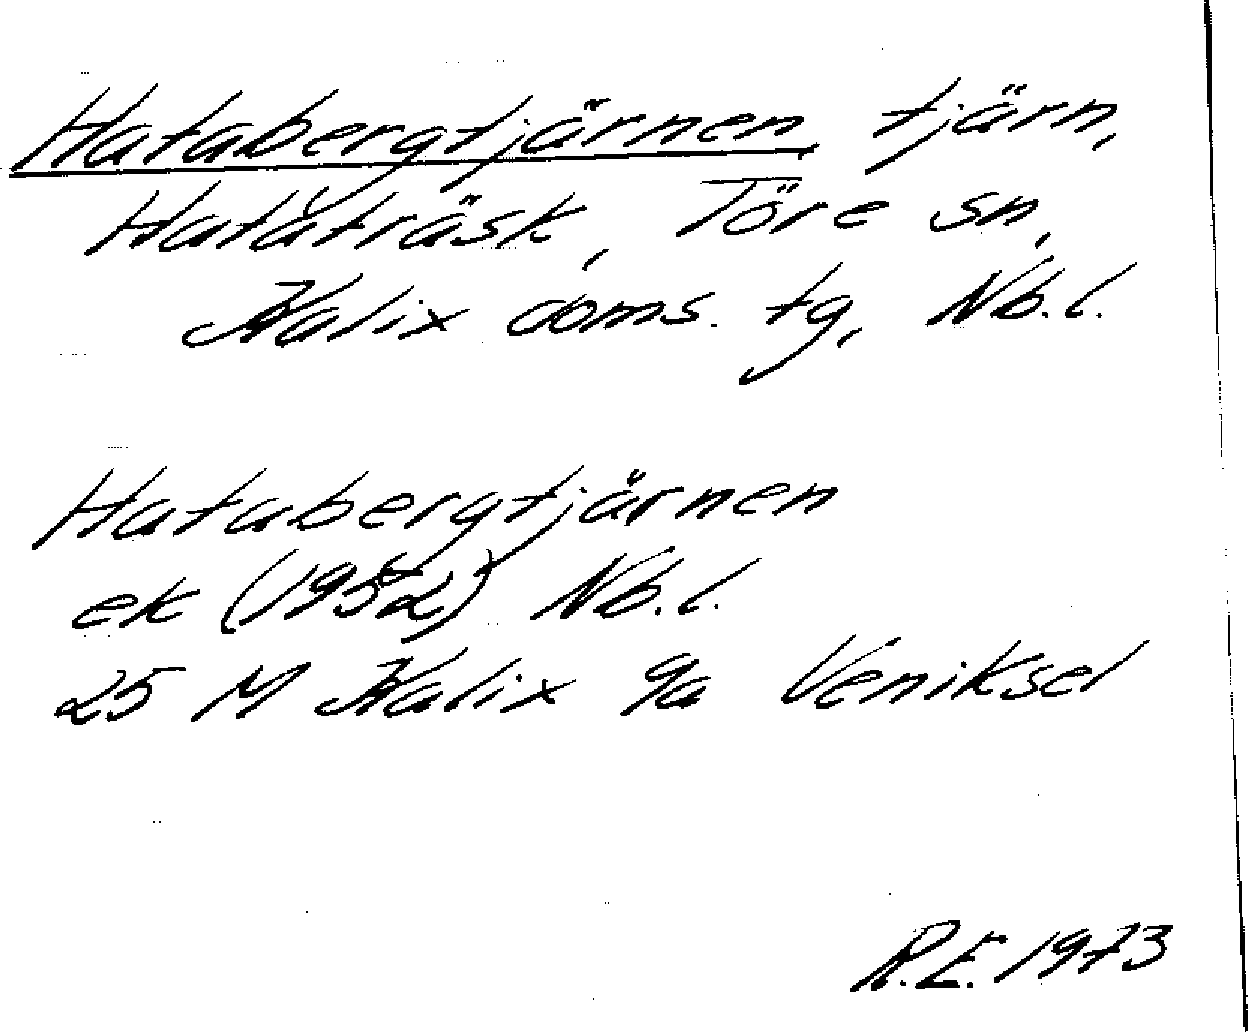 Hatabergtjärnen, tjärn,
Hataträsk, Töre sn,
Kalix doms. tg, Nb.l.
Hatabergtjärnen
ek (1952) Nb.l.
25 M Kalix 9a Veniksel
R.E. 1973